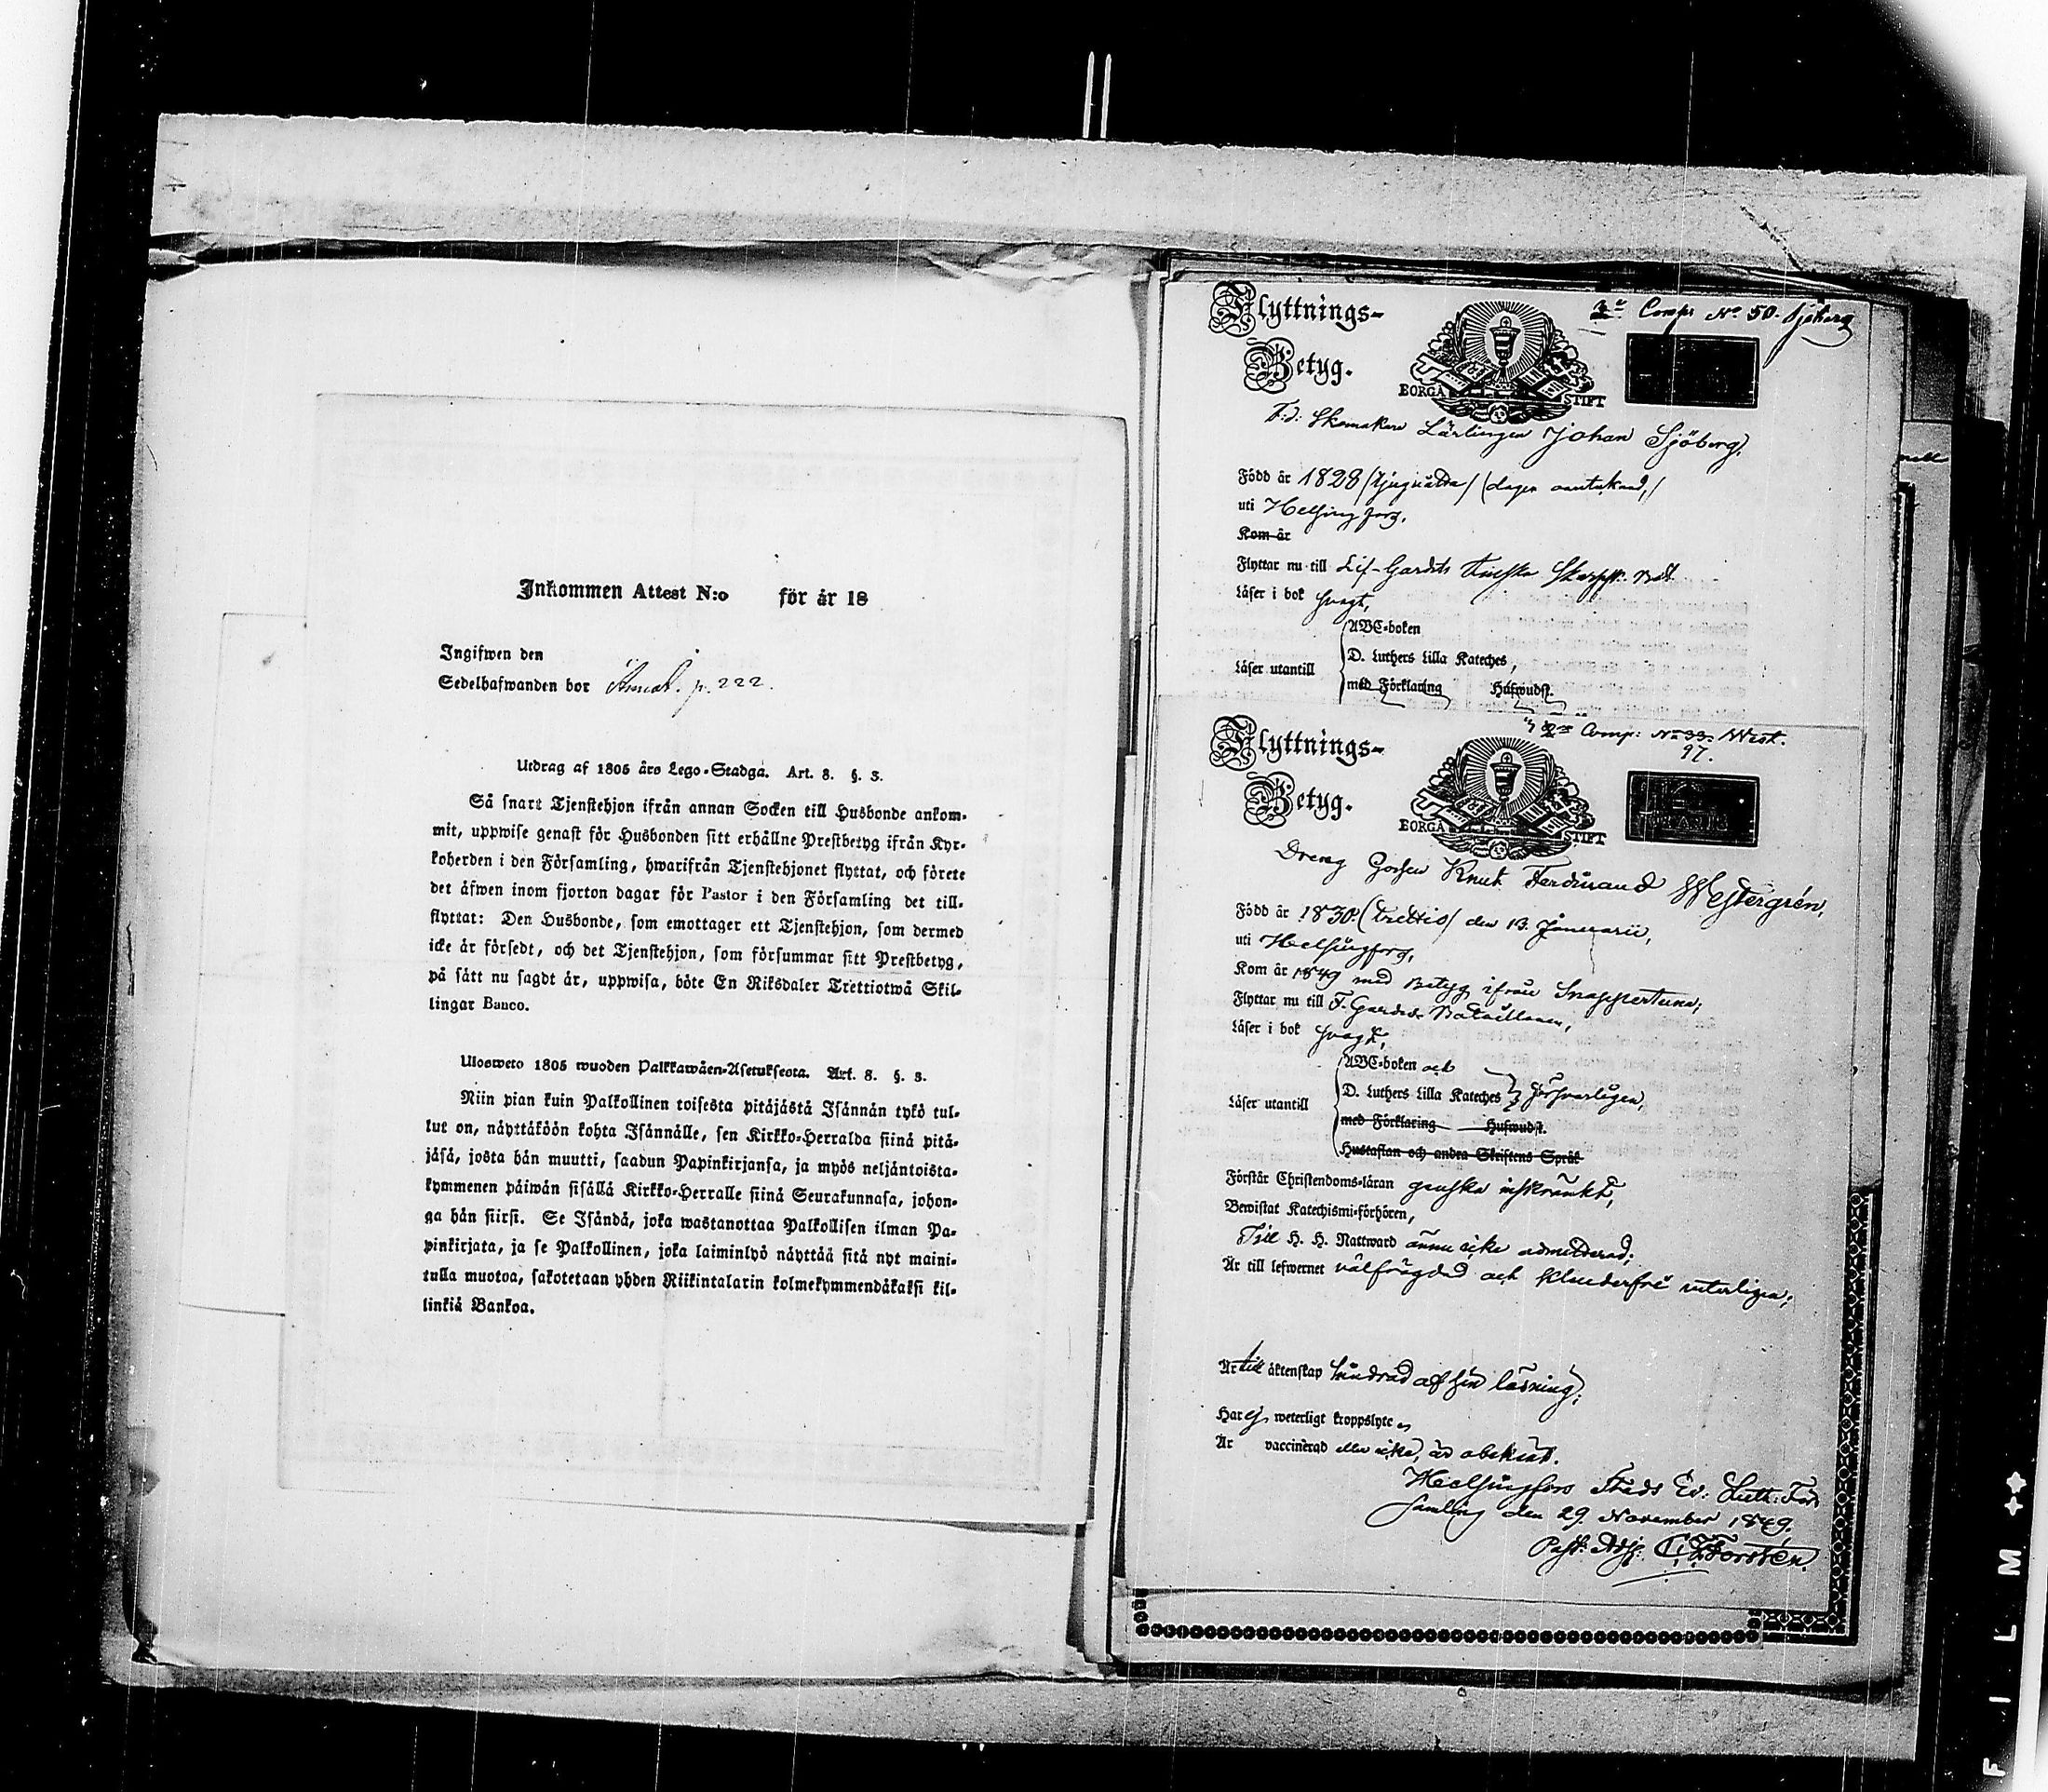 Inkommen Attest N:o för år 18
Ingifwen den
Sedelhafwanden bor p. 222.
Utdrag af 1805 års Lego-Stadga. Art. 8. §. 3.
Så snart Tjenstehjon ifrån annan Socken till Husbonde ankom-
mit, uppwise genast för Husbonden sitt erhållne Prestbetyg ifrån Kyr-
koherden i den Församling, hwarifrån Tjenstehjonet flyttat, och förete
det äfwen inom fjorton dagar för Pastor i den Församling det till-
flyttat: Den Husbonde, som emottager ett Tjenstehjon, som dermed
icke är försedt, och det Tjenstehjon, som försummar sitt Prestbetyg,
på sätt nu sagdt är, uppwisa, böte En Riksdaler Trettiotwå Skil-
lingar Banco.
Ulosweto 1805 wuoden Palkkawäen-Asetuksesta. Art. 8. §. 3.
Niin pian kuin Palkollinen toisesta pitäjästä Isännän tykö tul-
lut on, näyttäköön kohta Isännälle, sen Kirkko-Herralda siinä pitä-
jäsä, josta hän muutti, saadun Papinkirjansa, ja myös neljäntoista-
kymmenen päiwän sisällä Kirkko-Herralle siinä Seurakunnasa, johon-
ga hän siirsi. Se Isändä, joka wastanottaa Palkollisen ilman Pa-
pinkirjata, ja se Palkollinen, joka laiminlyö näyttää sitä nyt maini-
tulla muotoa, sakotetaan yhden Riikintalarin kolmekymmendäkaksi kil-
linkiä Bankoa.
Comp. No 50. Sjöberg
Flyttnings-
Betyg.
BORGÅ STIFT
F: d: Skomakare Lärlingen Johan Sjöberg,
Född år 1828 (tjuguåtta) (dagen
uti Helsingfors,
Kom år
Flyttar nu till Lif-Gardets Finska Skarpsk. Bat.
Läser i bok svagt,
Läser utantill
ABC-boken
D. Luthers Lilla Kateches,
med Förklaring Hufwudst.
Comp: No 33. West.
97.
Flyttnings-
Betyg.
BORGÅ STIFT
Dreng Gossen Knut Ferdinand Westergrén,
Född år 1830 (trettio) den 13 Januarii,
uti Helsingfors,
Kom år 1849 med Betyg ifrån Snappertuna;
Flyttar nu till F. Gardes Bataillonen,
Läser i bok svagt,
Läser utantill
ABC-boken och
D. Luthers Lilla Kateches försvarligen,
med Förklaring Hufwudst.
Hustaflan och andra Skriftens Språk
Förstår Christendoms-läran ganska inskränkt,
Bewistat Katechismi-förhören,
Till H. H. Nattward ännu icke admitterad;
Är till lefwernet välfrägdad och klanderfri veterligen;
Är till äktenskap hindrad af sin läsning;
Har ej weterligt kroppslyte,
Är vaccinerad eller icke, är obekant.
Helsingfors Stads Ev: Luth: För-
samling den 29. November 1849.
Past: Adj: C. F. Forstén.
FILM